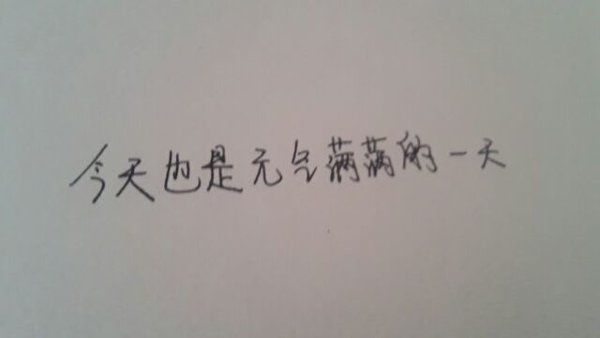 今天也是元气满满的一天